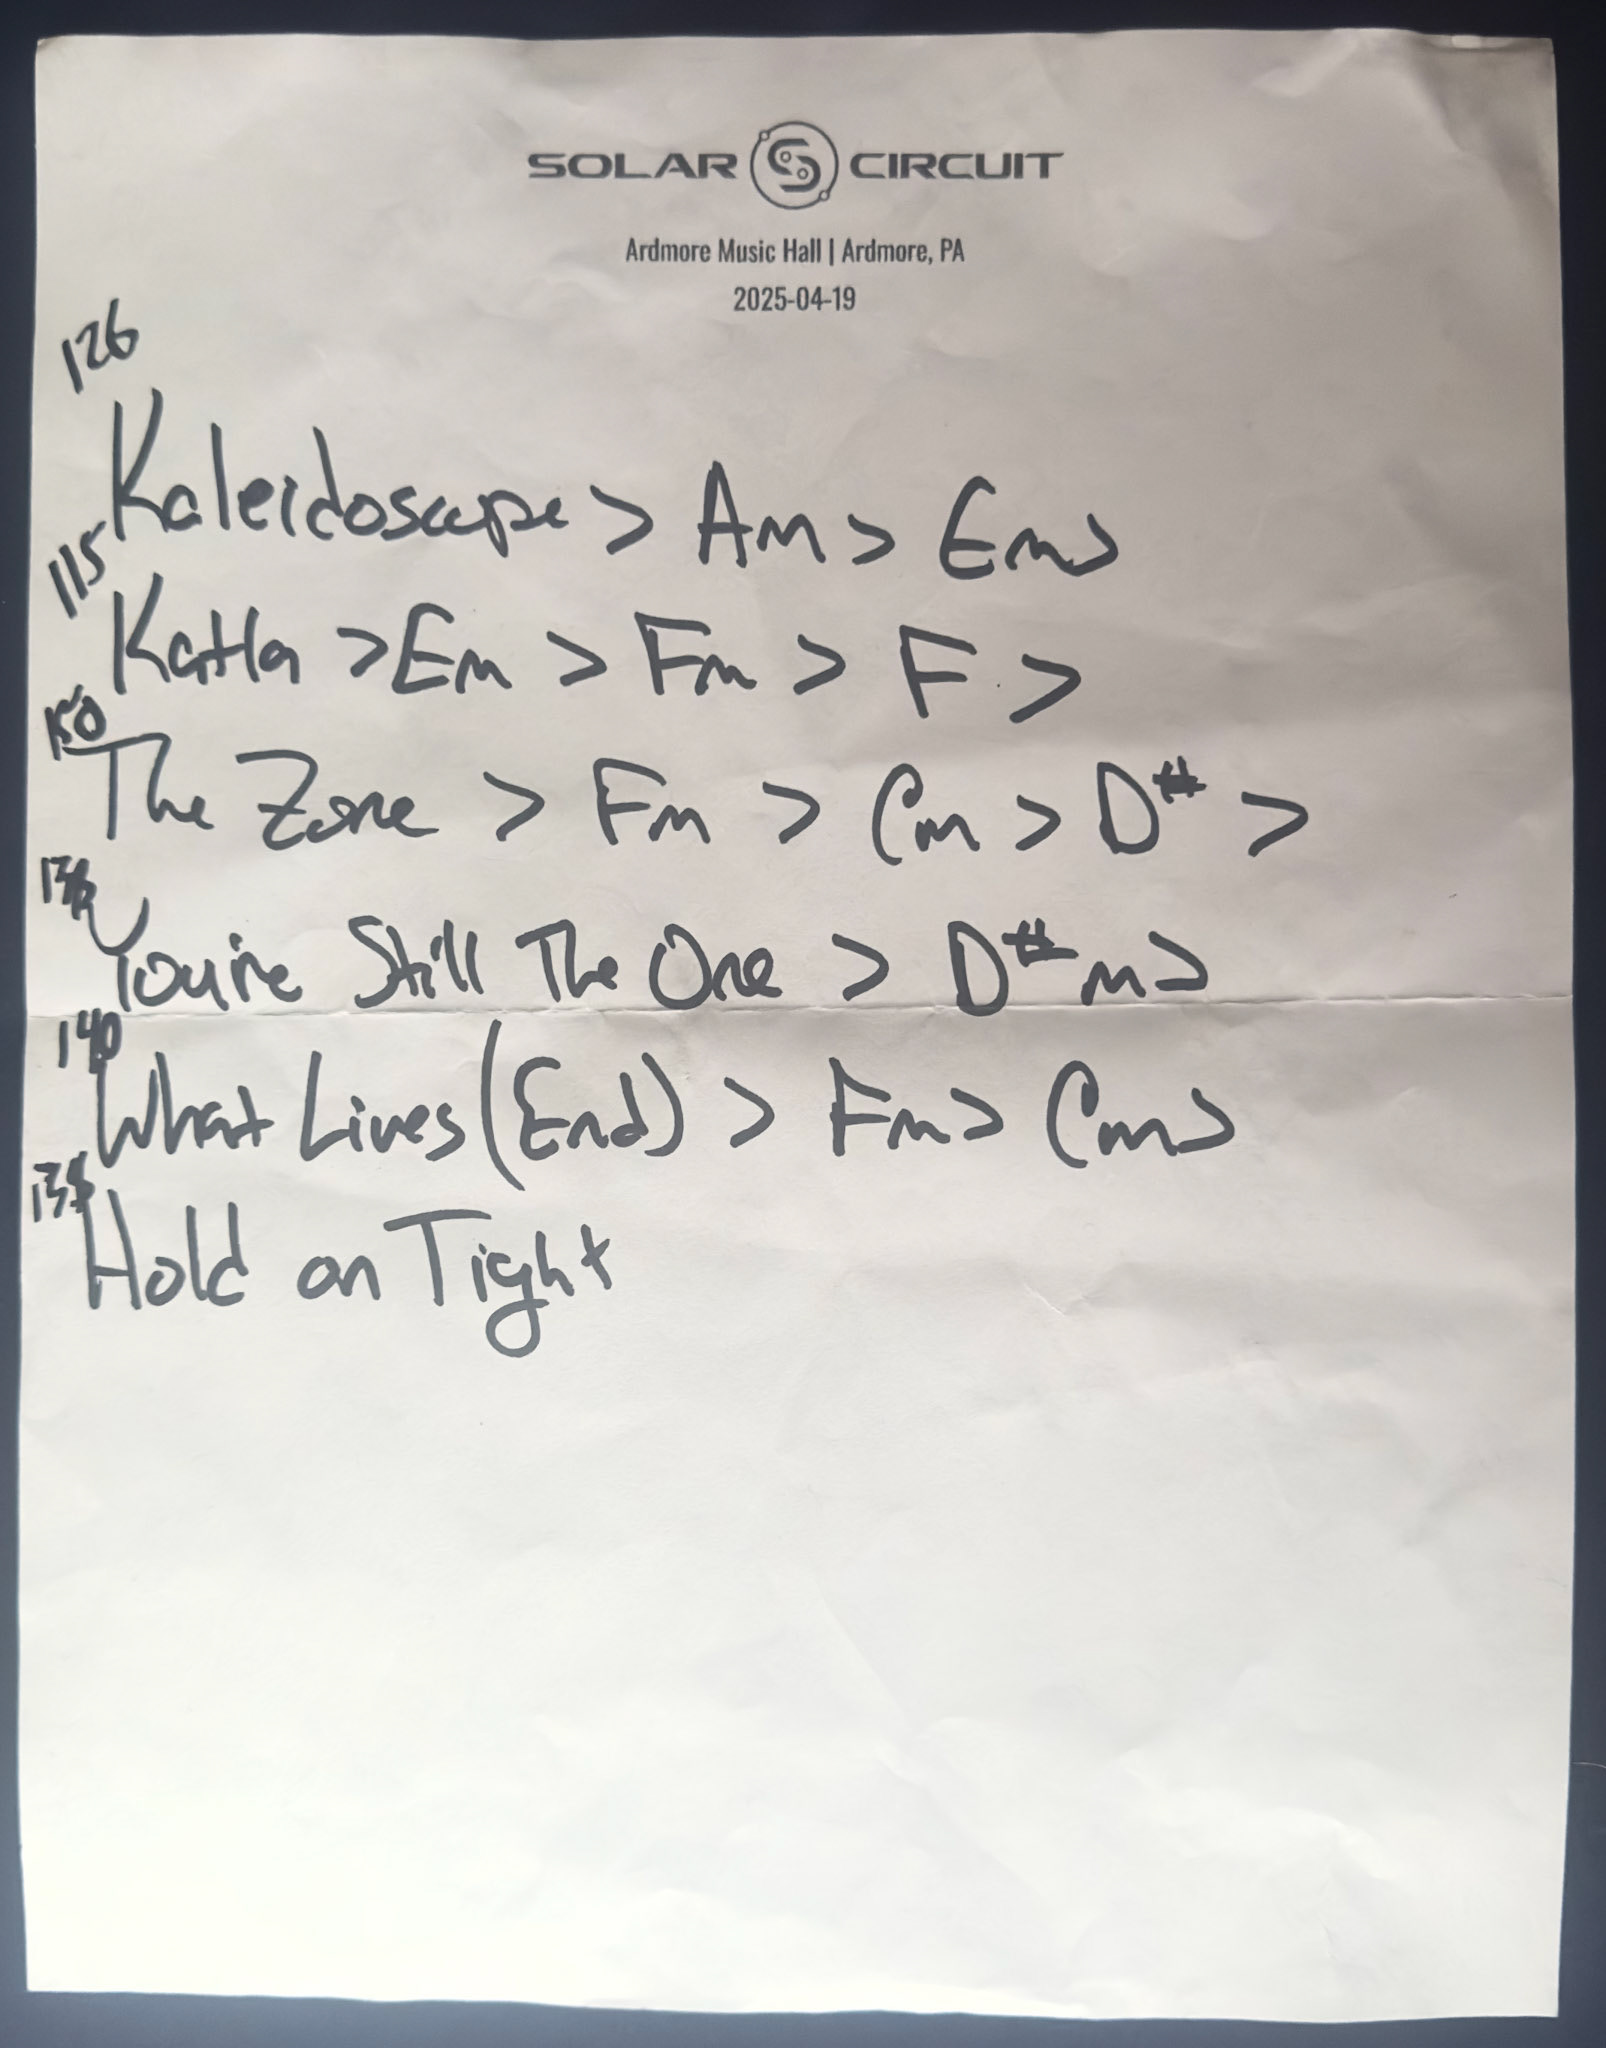 SOLAR CIRCUIT
Ardmore Music Hall | Ardmore, PA
2025-04-19
126
Kaleidoscope > Am > Em >
115
Katla > Em > Fm > F >
150
The Zone > Fm > Cm > D# >
You're Still The One > D#m >
140
What Lives (End) > Fm > Cm >
135
Hold on Tight